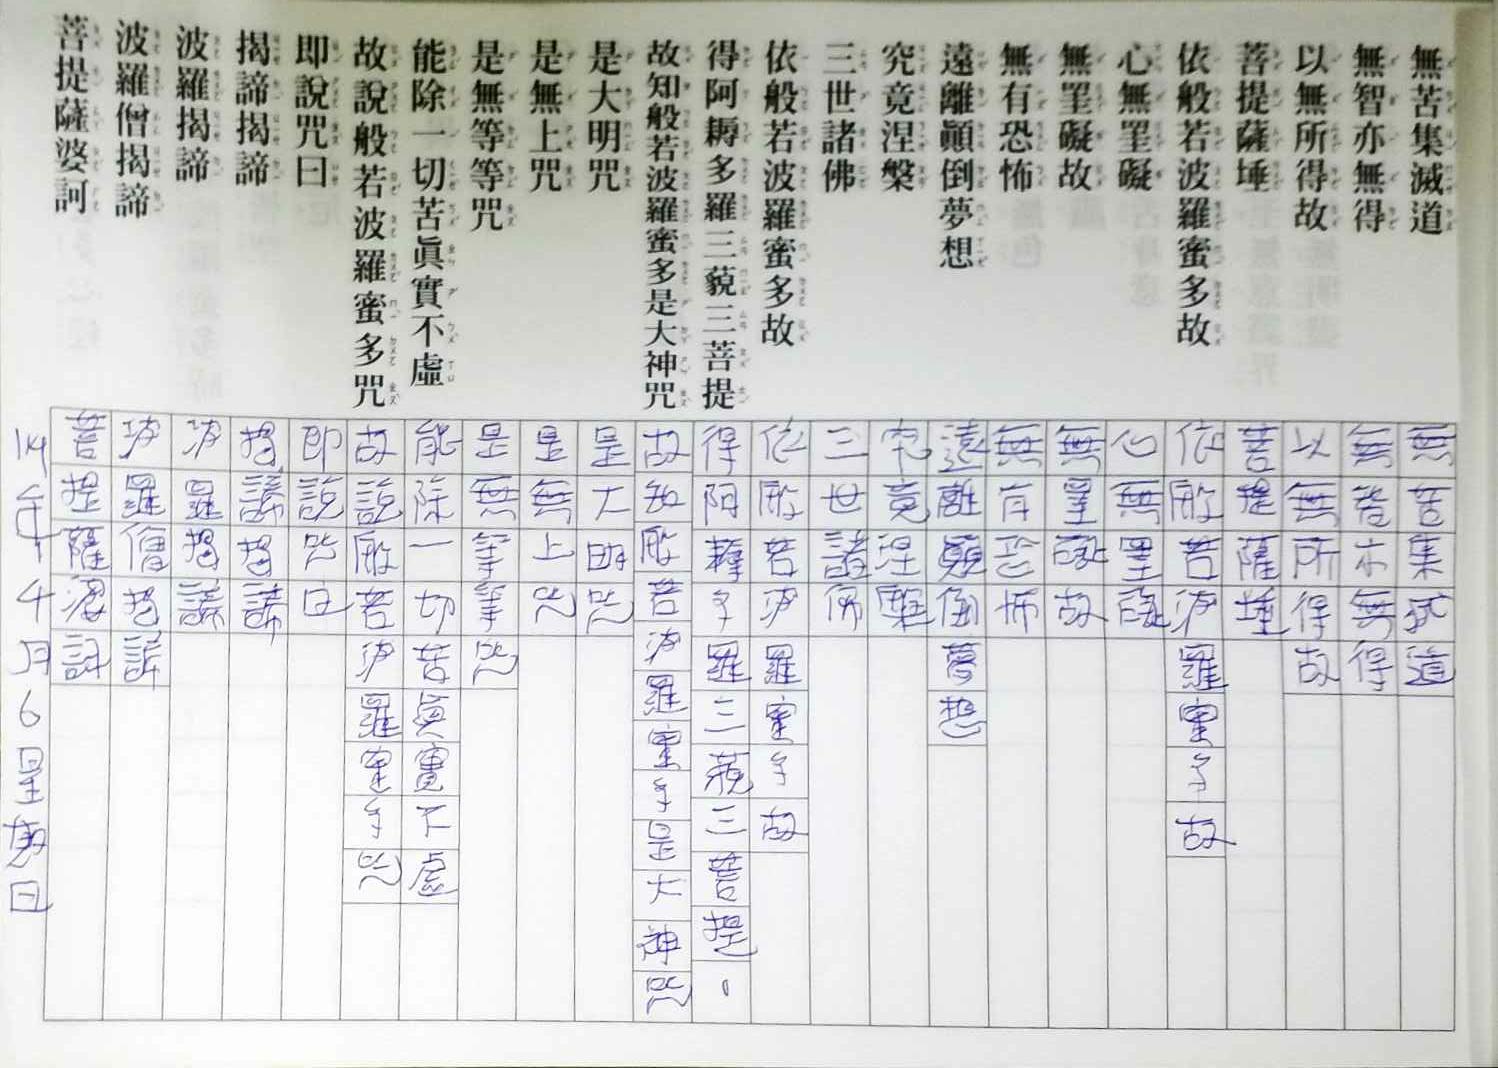 無苦集滅道
無智亦無得
以無所得故
菩提薩埵
依般若波羅蜜多故
心無罣礙
無罣礙故
無有恐怖
遠離顚倒夢想
究竟涅槃
三世諸佛
依般若波羅蜜多故
得阿耨多羅三藐三菩提
故知般若波羅蜜多是大神咒
是大明咒
是無上咒
是無等等咒
能除一切苦眞實不虛
故說般若波羅蜜多咒
即說咒曰
揭諦揭諦
波羅揭諦
波羅僧揭諦
菩提薩婆訶
無苦集滅道
無智亦無得
以無所得故
菩提薩埵
依般若波羅蜜多故
心無罣礙
無罣礙故
無有恐怖
遠離顛倒夢想
究竟涅槃
三世諸佛
依般若波羅蜜多故
得阿耨多羅三藐三菩提。
故知般若波羅蜜多是大神咒
是大明咒
是無上咒
是無等等咒
能除一切苦真實不虛
故說般若波羅蜜多咒
即說咒曰
揭諦揭諦
波羅揭諦
波羅僧揭諦
菩提薩婆訶
年4月6星期日